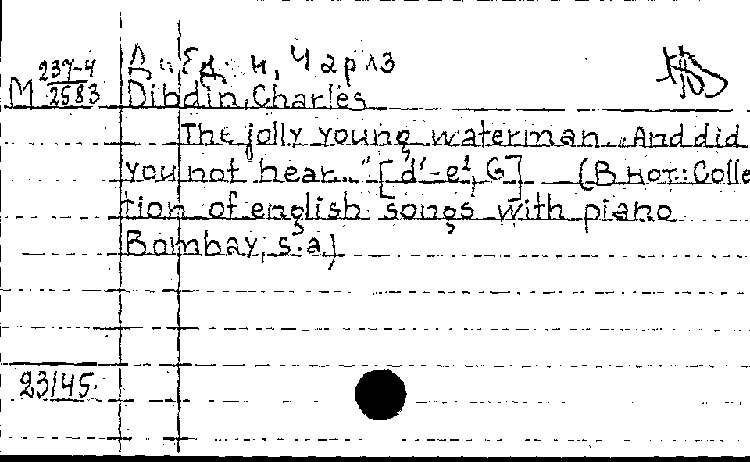 Дибдин, Чарлз
М 237-4/2583 Dibdin, Charles
The jolly young waterman. „And did
you not hear..." [d¹-e², G] (В нот: Colle
tion of english songs with piano
Bombay, s.a.)
23145.